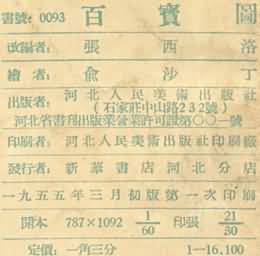 書號: 0093 百寶圖
改編者: 張西洛
繪者: 俞沙丁
出版者: 河北人民美術出版社
(石家莊中山路232號)
河北省書刊出版業營業許可證第〇〇一號
印刷者: 河北人民美術出版社印刷廠
發行者: 新華書店河北分店
一九五五年三月初版第一次印刷
開本 787×1092 1/60 印張 21/30
定價: 一角三分 1—16,100